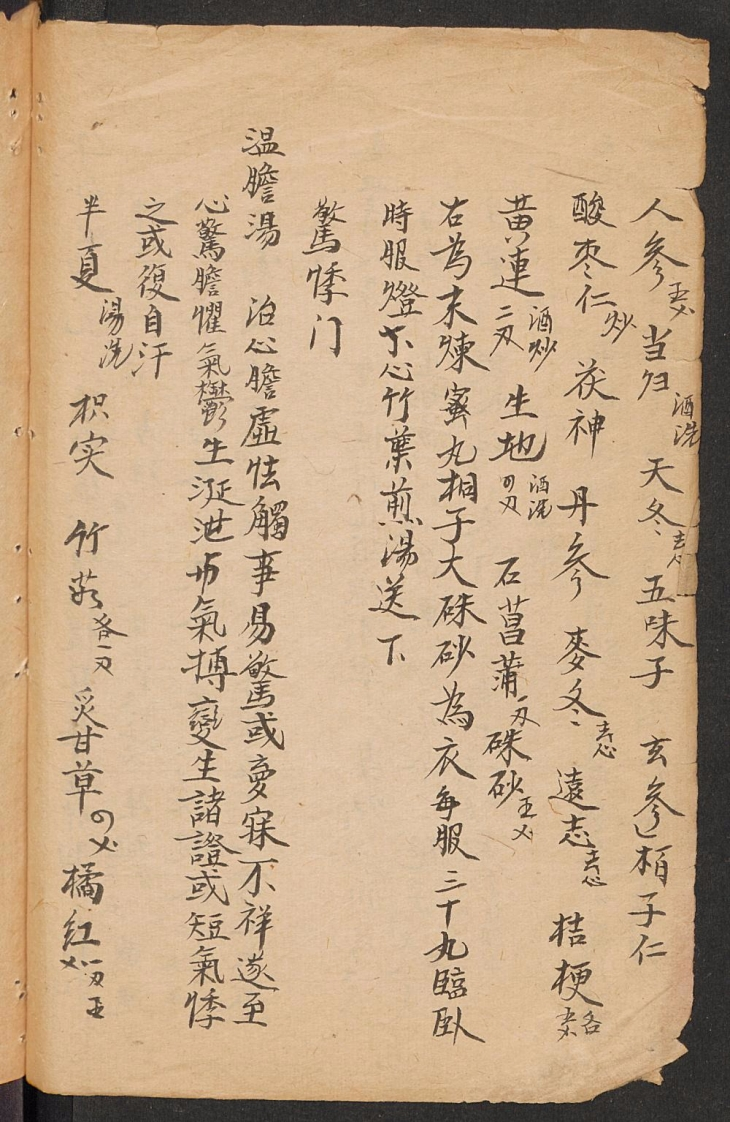 人參五𠂆 当归酒洗 天冬去心 五味子 玄參 柏子仁
酸枣仁炒 茯神 丹參 麥冬去心 遠志去心 桔梗各五𠂆
黄連酒炒二刄 生地酒洗四刄 石菖蒲一刄 硃砂五
右為末煉蜜丸桐子大硃砂為衣每服三十丸臨臥
時服燈心竹葉煎湯送下
驚悸门
温膽湯 治心膽虛怯觸事易驚或夢寐不祥遂至
心驚膽懼氣鬱生涎涎与氣搏變生諸證或短氣悸
之或復自汗
半夏湯洗 枳实 竹茹各一刄 炙甘草四 橘红一刄五